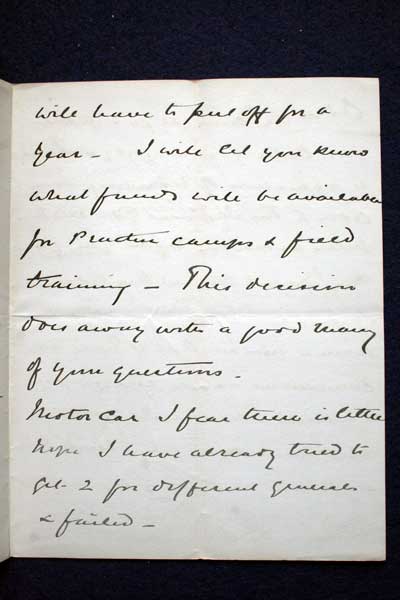 will have to put off for a
year - I will let you know
what funds will be available
for Practice camps & field
training - This decision
does away with a good many
of your questions -
Motor Car I fear there is little
hope I have already tried to
get 2 for different generals
& failed -